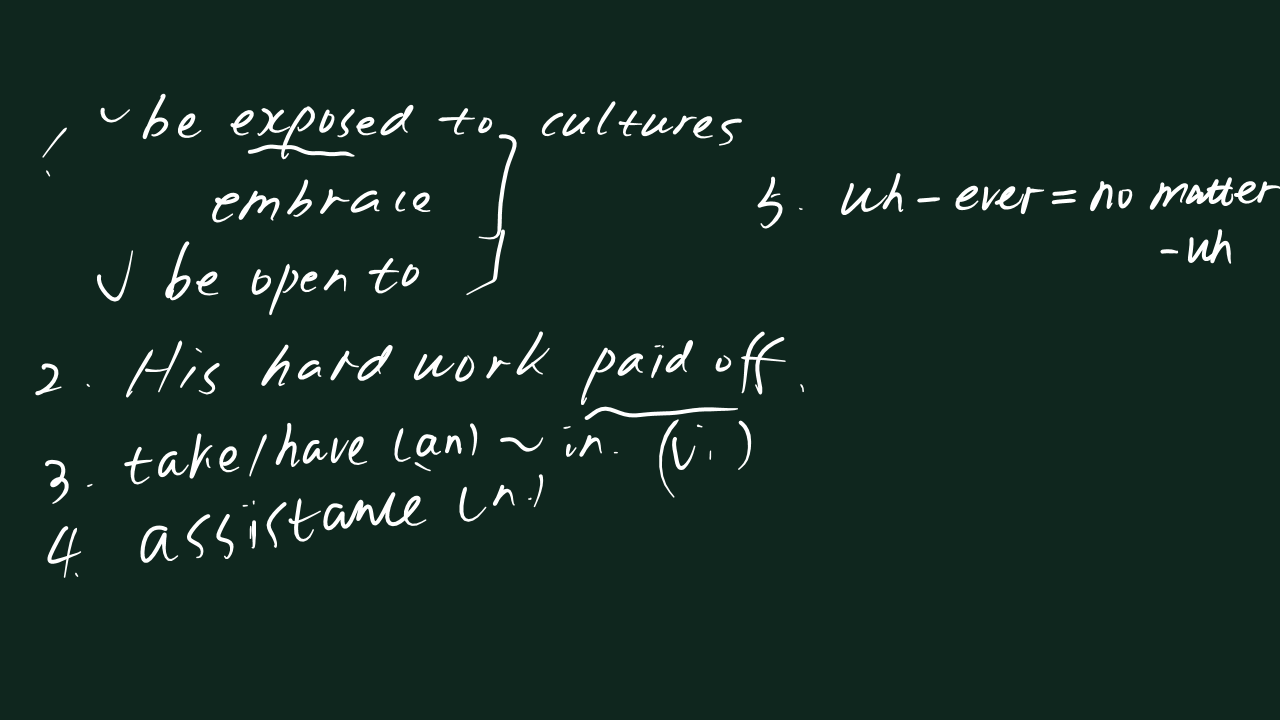 1. be exposed to cultures
embrace
be open to
2. His hard work paid off.
3. take/have (an) ~ in. (vi.)
4. assistance (n.)
5. wh-ever = no matter
-wh